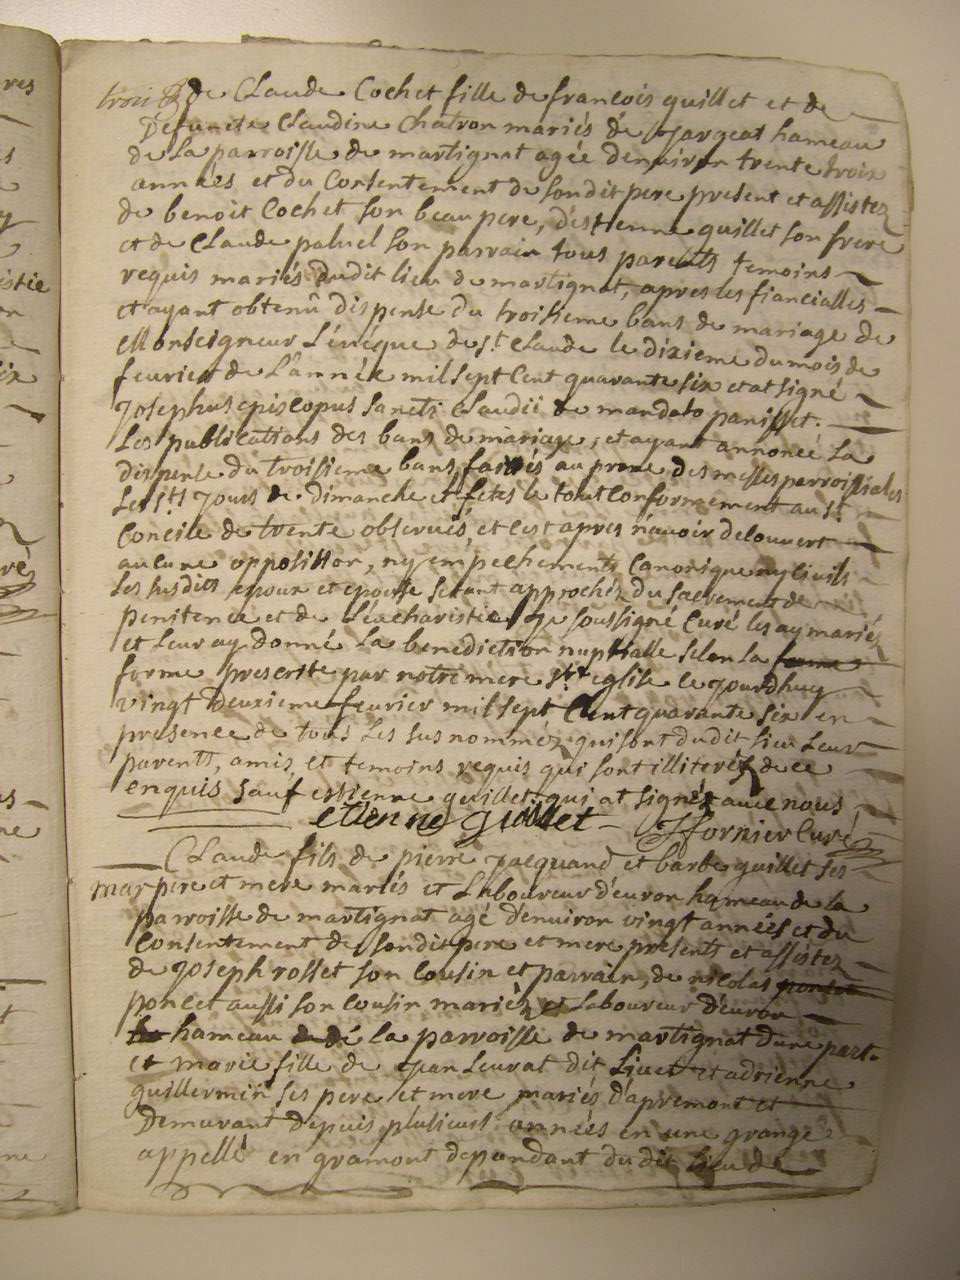 de Claude Cochet fille de francois guillet et de
Defuncte Claudine Chatron mariés de Jargeat hameau
de La parroisse de martignat agée denviron trente trois
années et du Consentement de sondit pere present et assistez
de benoit Cochet son beau pere, d'estienne guillet son frere
et de Claude paluel son parrain tous parents temoins
requis mariés dudit lieu de martignat, apres les fiancialles
et ayant obtenû dispense du troisieme bans de mariage de
Monseigneur L'évêque de st. Claude le dixieme du mois de
feurier de L'année mil sept Cent quarante six et at signé
Josephus episcopus sancti Claudii de mandato panisset.
Les publications des bans de mariage, et ayant annoncé La
dispense du troisieme bans faittés au prone des messes parroissiales
Les sts Jours de Dimanche et fêtes le tout Conformement au st.
Concile de trente observés, et C'est apres n'avoir decouvert
aucune opposition, ny empechements Canonique ny Civils
Les susdits epoux et epouse s'etant approchéz du sacrement de
penitence et de L'eucharistie Je soussigné Curé les ay mariés
et Leur ay donné La benediction nuptialle selon la forme
forme prescrite par notre mere ste eglise le Jourdhuy
vingt deuxieme feurier mil sept Cent quarante six en
presence de tous Les sus nomméz qui sont dudit lieu Leurs
parents, amis et temoins requis qui sont illiteréz de ce
enquis sauf estienne guillet qui at signéz avec nous
etienne guillet Fornier Curé
Claude fils de pierre Jacquand et barbe guillet ses
mar pere et mere mariés et Laboureur d'euron hameau de la
parroisse de martignat agé d'environ vingt années et du
Consentement de sondit pere et mere présents et assistez
de Joseph rosset son Cousin et parrain, de nicolas poncet
poncet aussi son Cousin mariéz et Laboureur d'euron
hameau de la parroisse de martignat d'une part.
et marie fille de Jean Leurat dit Livet et adrienne
guillermin ses pere et mere mariés d'apremont et
Demurant depuis plusieurs années en une grange
appellé en gramont dependant dudit lieu de